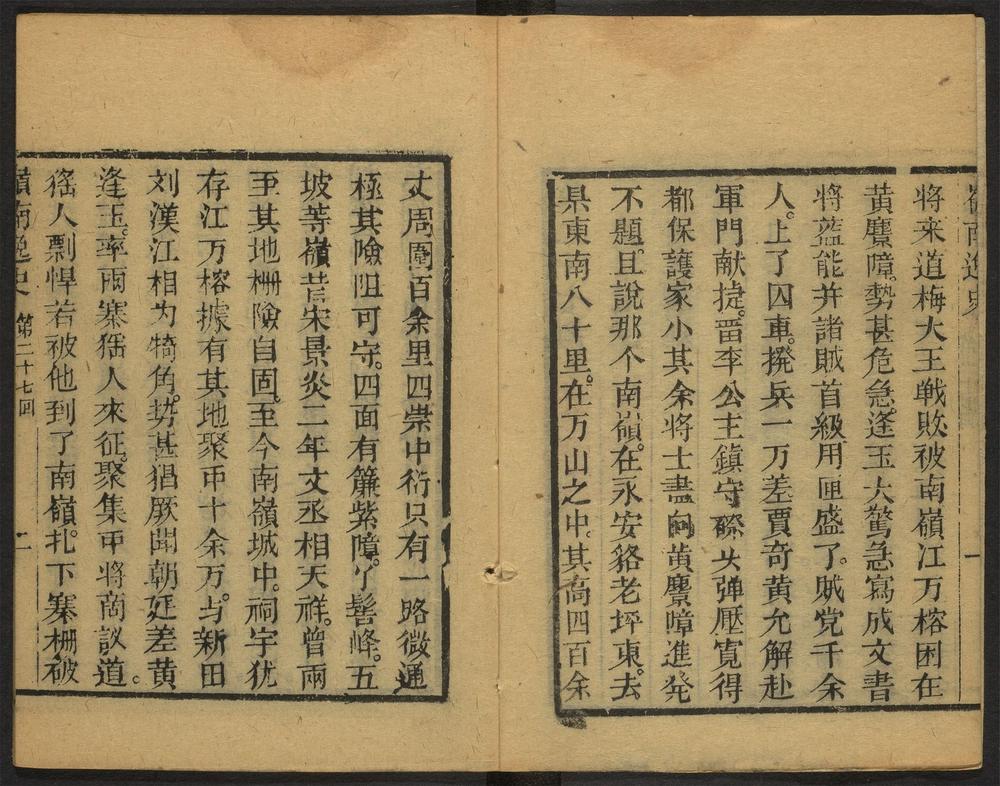 嶺南逸史
一
将来道梅大王戦敗被南嶺江万榕困在
黄麖嶂。勢甚危急。逢玉大驚急寫成文書
将蓝能并諸賊首級用匣盛了。贼党千余
人。上了囚車。撥兵一万差賈奇黄允解赴
軍門献㨗。畱李公主鎮守磜头弹壓寬得
都保護家小其余将士盡向黄麖嶂進発
不題。且說那个南嶺。在永安貉老坪東。去
県東南八十里。在万山之中。其高四百余
丈周圍百余里四崇中衍只有一路微通
極其險阻可守。四面有簾紫嶂。丫髻峰。五
坡等嶺昔宋景炎二年文丞相天祥。曾兩
至其地柵險自固。至今南嶺城中。祠宇犹
存江万榕據有其地聚中十余万。与新田
刘漢江相为犄角。势甚猖厥聞朝廷差黄
逢玉。率兩寨猺人來征。聚集中将商议道。
猺人剽悍若被他到了南嶺。扎下寨柵破
嶺南逸史
第二十七囘
二